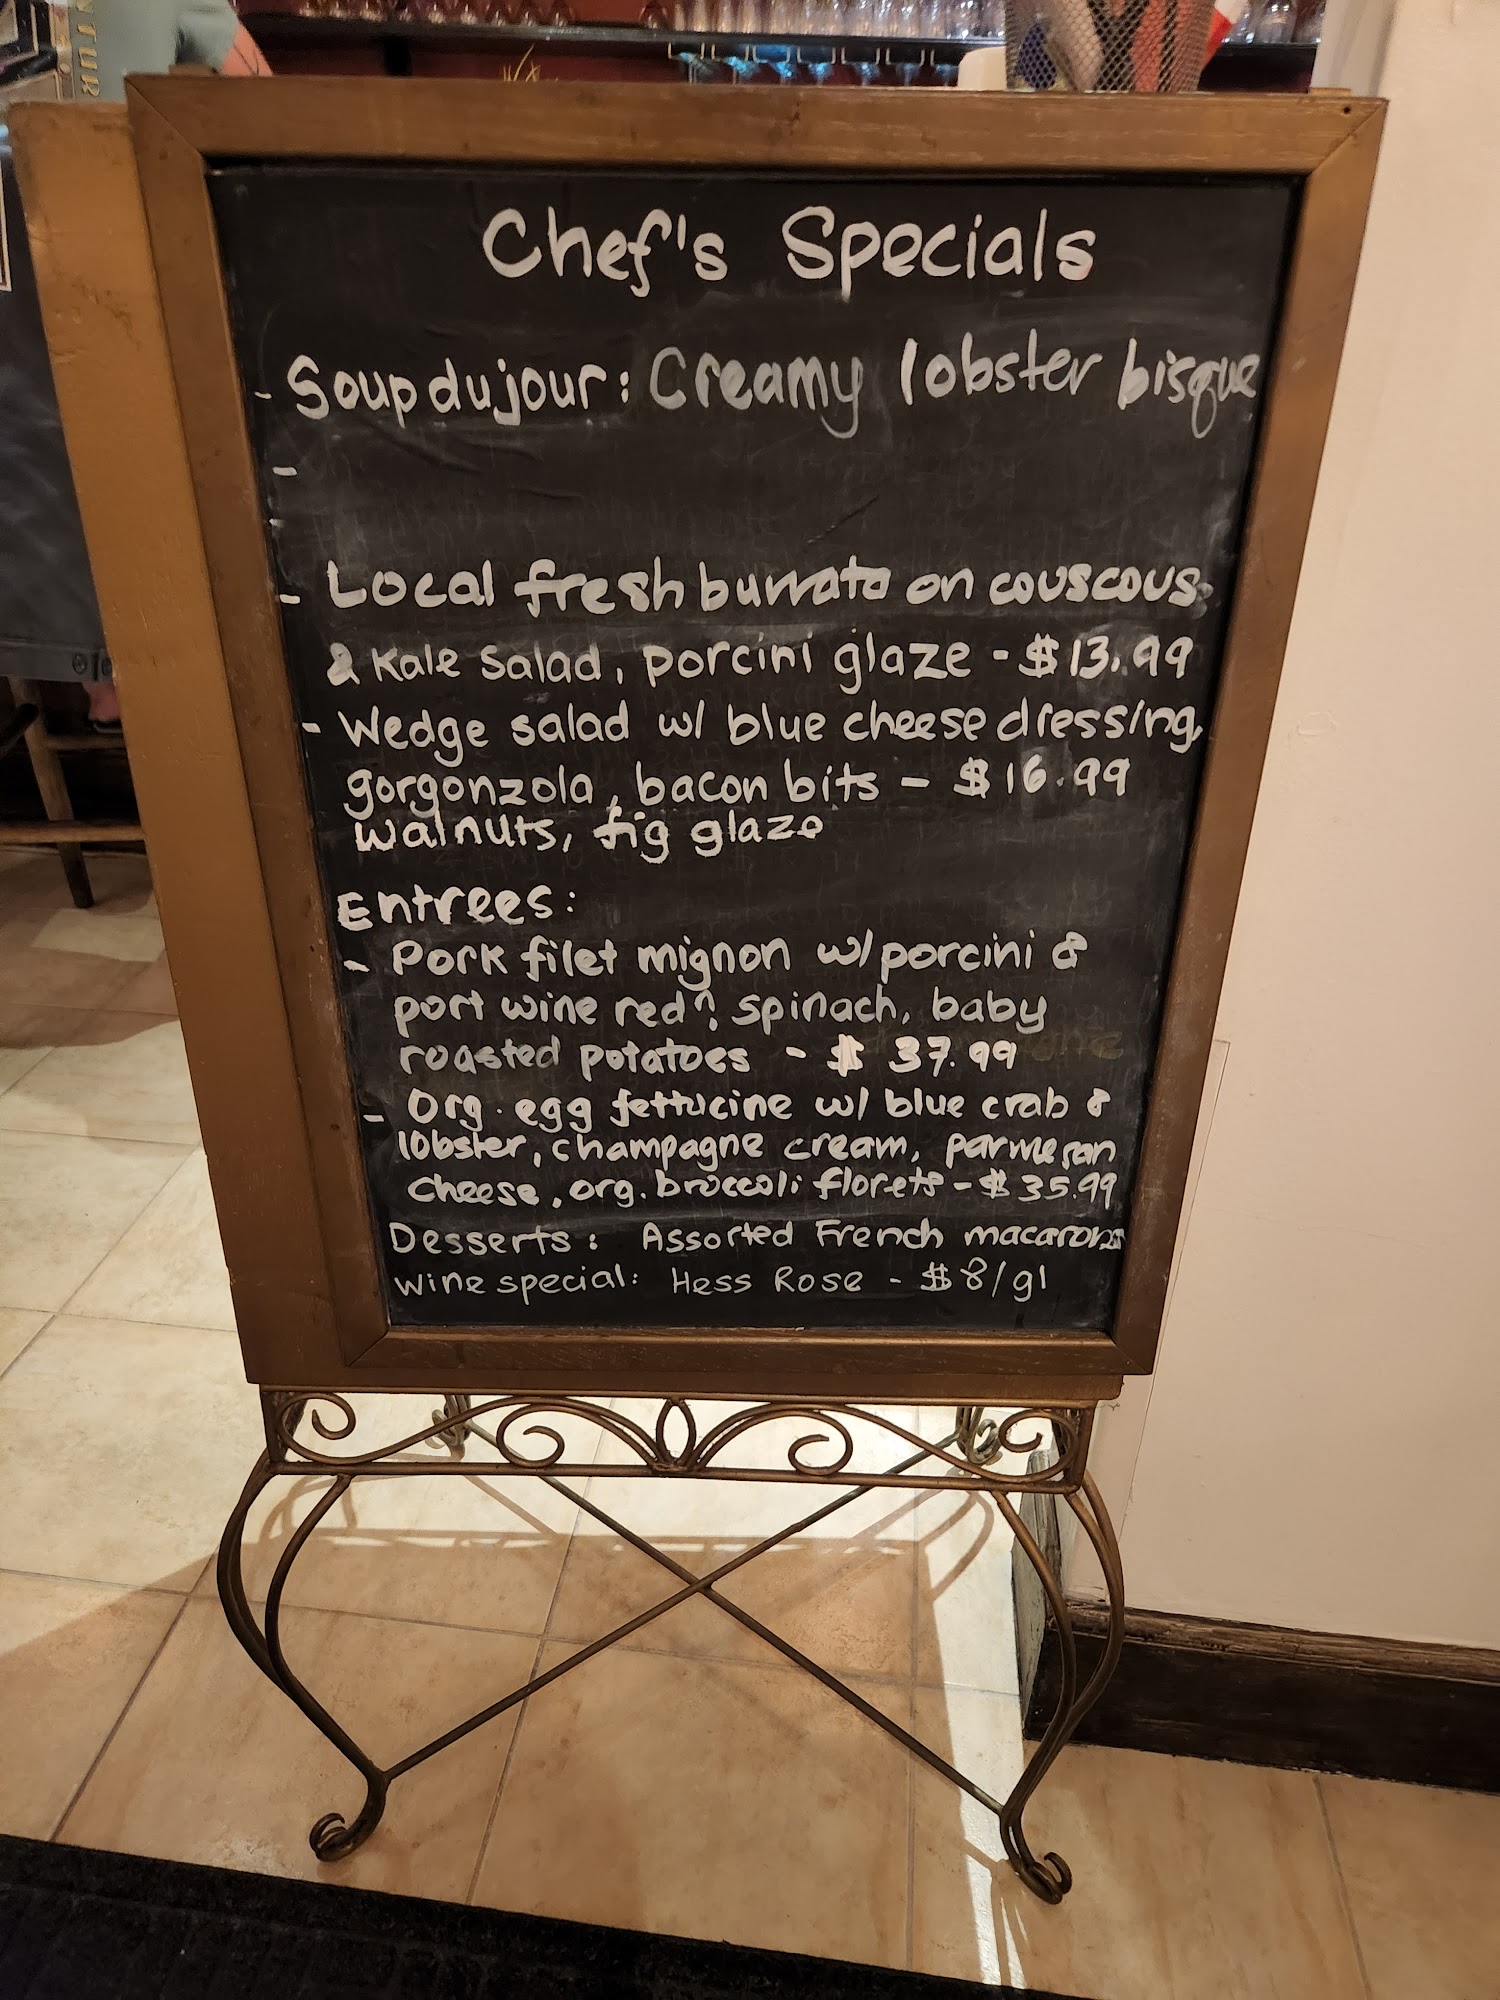 NTUR
Chef's Specials
- Soup du jour: Creamy lobster bisque
-
-
- Local fresh burrata on couscous
& Kale Salad, porcini glaze - $13.99
- Wedge salad w/ blue cheese dressing,
gorgonzola, bacon bits - $16.99
walnuts, fig glaze
Entrees:
- Pork filet mignon w/ porcini &
port wine red^, spinach, baby
roasted potatoes - $ 37.99
- Org. egg fettucine w/ blue crab &
lobster, champagne cream, parmesan
cheese, org. broccoli florets - $35.99
Desserts: Assorted French macarons
wine special: Hess Rose - $8/gl